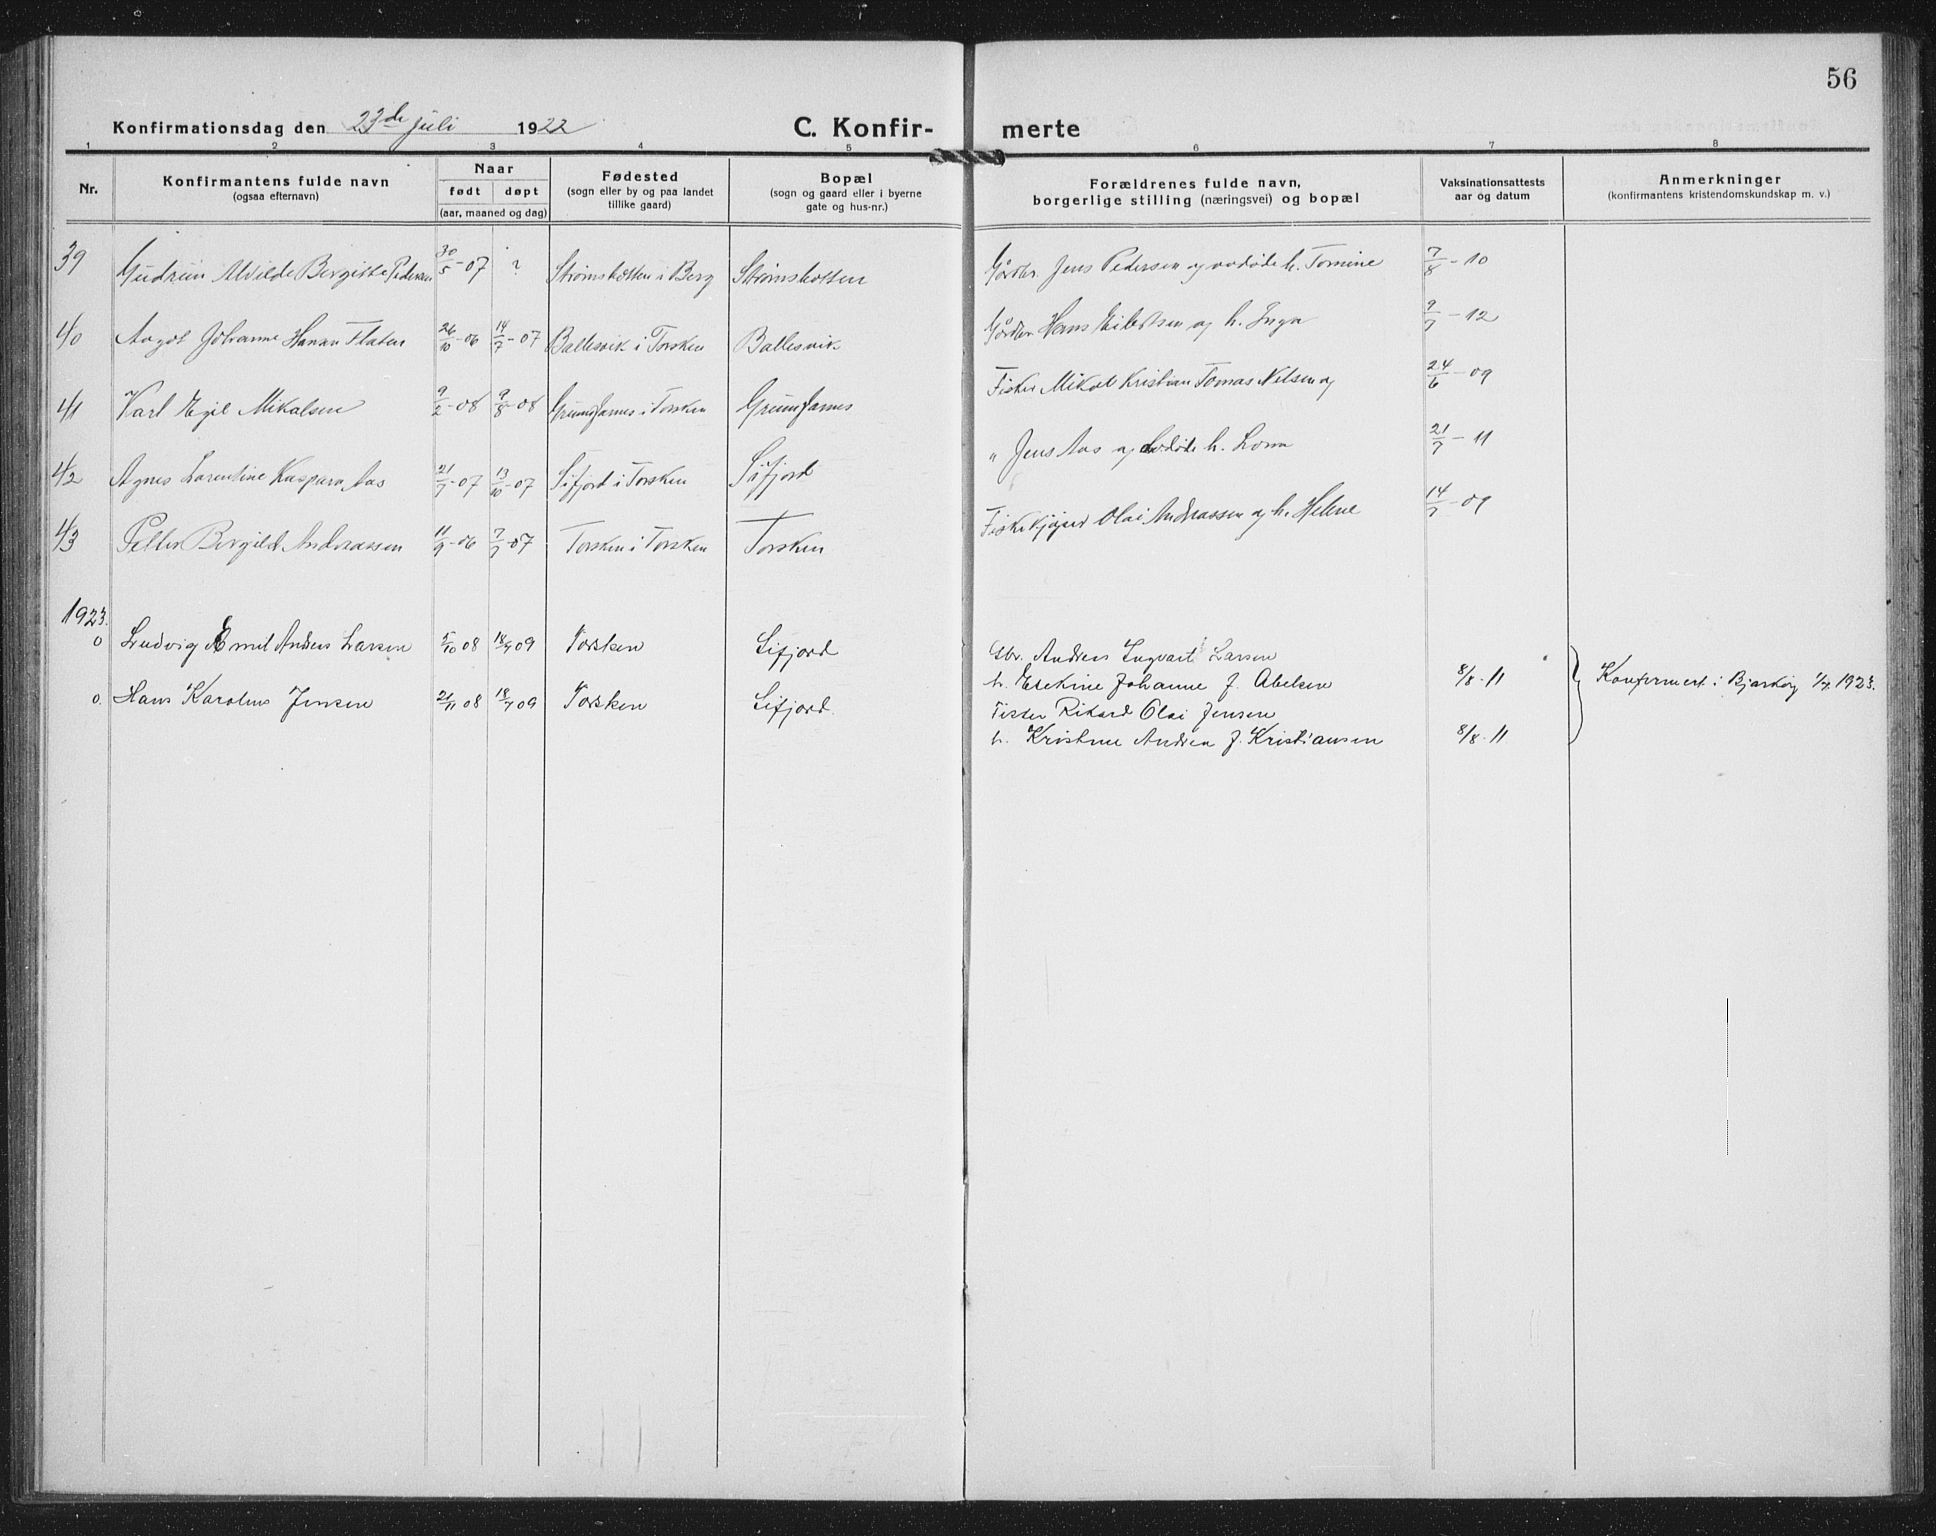 56
Konfirmationsdag den 23de juli 1922 C. Konfir- merte
1 2 3 4 5 6 7 8
Nr. Konfirmantens fulde navn (ogsaa efternavn) Naar født døpt (aar, maaned og dag) Fødested (sogn eller by og paa landet tillike gaard) Bopæl (sogn og gaard eller i byerne gate og hus-nr.) Forældrenes fulde navn, borgerlige stilling (næringsvei) og bopæl Vaksinationsattests aar og datum Anmerkninger (konfirmantens kristendomskundskap m. v.)
39 Gudrun Alvilde Bergitte Pedersen 30/5-07 ? Strømsbotten i Berg Strømsbotten Gårdbr. Jens Pedersen og avdøde h. Tomine 7/8-10
40 Aagot Johanne Hanan Flaten 26/10-06 14/7-07 Ballesvik i Torsken Ballesvik Gårdbr. Hans Eilertsen og h. Inga 9/7-12
41 Karl Egil Mikalsen 9/2-08 9/8-08 Grunfarnes i Torsken Grunfarnes Fisker Mikal Kristian Tomas Nilsen og 24/6-09
42 Agnes Larentine Kaspara Aas 21/7-07 13/10-07 Sifjord i Torsken Sifjord " Jens Aas og avdøde h. Lovn 21/7-11
43 Petter Bergild Andreassen 11/9-06 7/7-07 Torsken i Torsken Torsken Fiskekjøper Olai Andreassen og h. Helene 14/7-09
1923.
0 Ludvig Emil Anders Larsen 5/10 08 18/7 09 Torsken Sifjord Gbr. Andreas Ingvart Larsen
h. Esekine Johanne f. Abelsen 8/8-11 Konfirmert i Bjarkøy 1/7. 1923.
0. Hans Karolus Jensen 21/11 08 18/7 09 Torsken Sifjord. Fisker Rikard Olai Jensen
h. Kristine Andrea f. Kristiansen 8/8-11